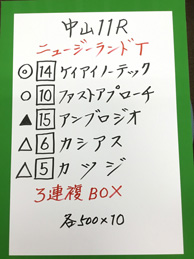 中山11R
ニュージーランドT
◎ 14 ケイアイノーテック
○ 10 ファストアプローチ
▲ 15 アンブロジオ
△ 6 カシアス
△ 5 カツジ
3連複BOX
各500×10